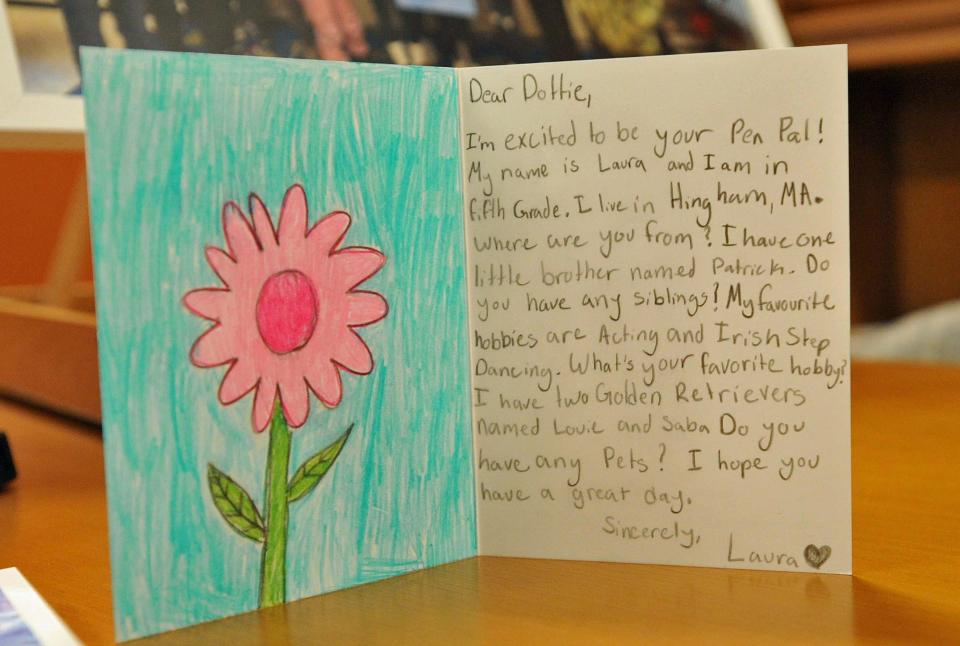 Dear Dottie,
I'm excited to be your Pen Pal!
My name is Laura and I am in
fifth Grade. I live in Hingham, MA.
Where are you from? I have one
little brother named Patrick. Do
you have any siblings? My favourite
hobbies are Acting and Irish Step
Dancing. What's your favorite hobby?
I have two Golden Retrievers
named Louie and Saba Do you
have any Pets? I hope you
have a great day.
Sincerely,
Laura ♥